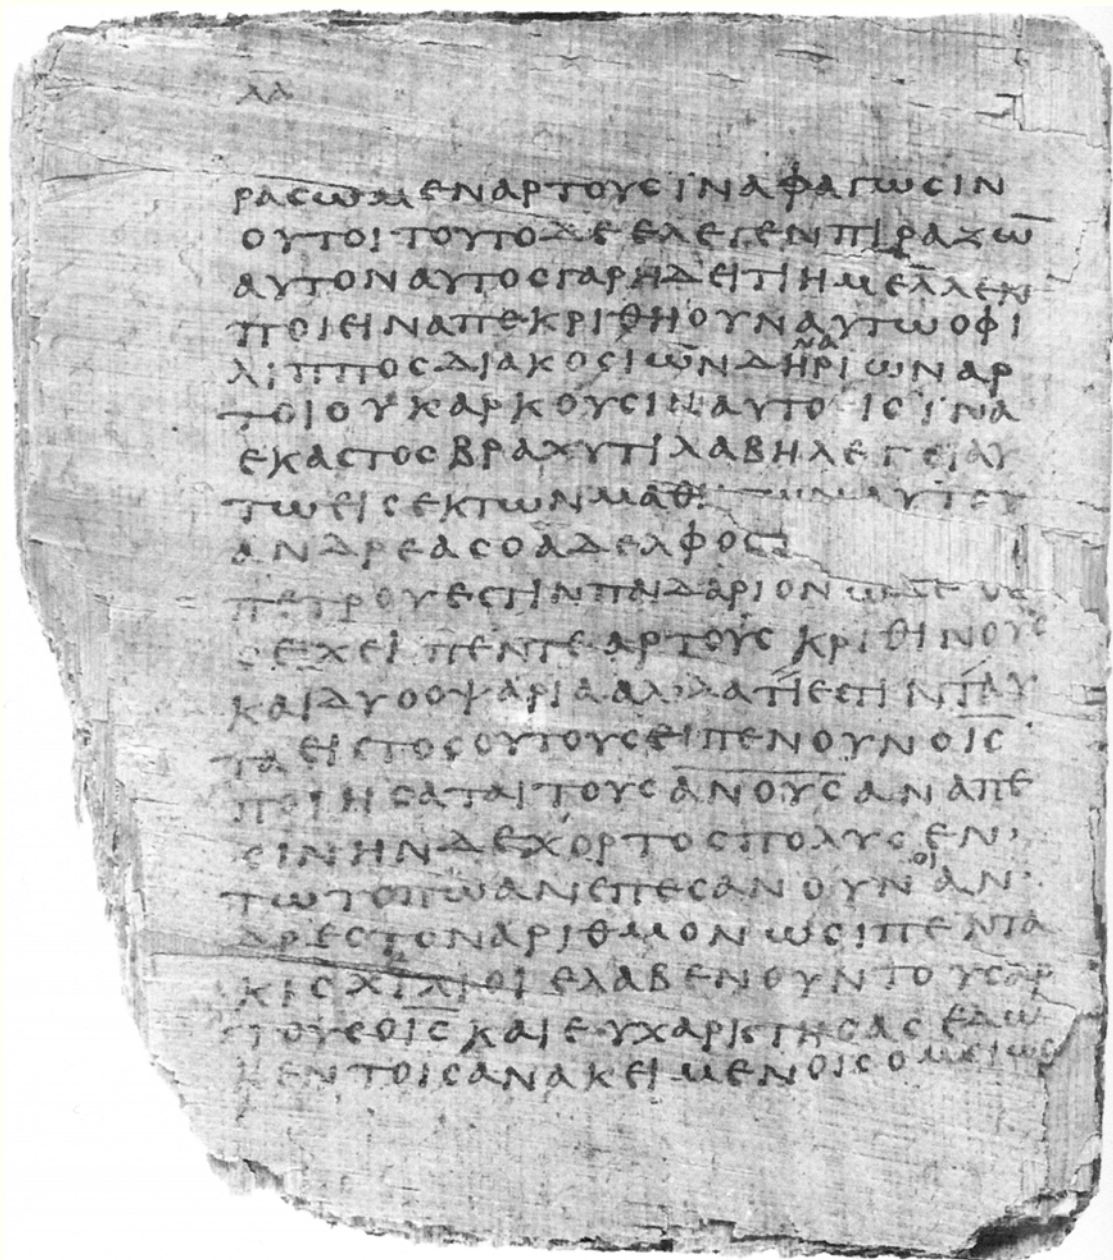 ΛΔ
ΡΑϹΩΜΕΝΑΡΤΟΥϹΙΝΑΦΑΓΩϹΙΝ
ΟΥΤΟΙΤΟΥΤΟΔΕΕΛΕΓΕΝΠΙΡΑΖΩ̅
ΑΥΤΟΝΑΥΤΟϹΓΑΡΗΔΕΙΤΙΗΜΕΛΛΕΝ
ΠΟΙΕΙΝΑΠΕΚΡΙΘΗΟΥΝΑΥΤΩΟΦΙ
ΛΙΠΠΟϹΔΙΑΚΟϹΙΩΝΔΗΝΑΡΙΩΝΑΡ
ΤΟΙΟΥΚΑΡΚΟΥϹΙΝΑΥΤΟΙϹΙΝΑ
ΕΚΑϹΤΟϹΒΡΑΧΥΤΙΛΑΒΗΛΕΓΕΙΑΥ
ΤΩΕΙϹΕΚΤΩΝΜΑΘ ΤΩΝΑΥΤΟΥ
ΑΝΔΡΕΑϹΟΑΔΕΛΦΟϹ
ΠΕΤΡΟΥΕϹΤΙΝΠΑΙΔΑΡΙΟΝΩΔΕ
ΕΧΕΙΠΕΝΤΕΑΡΤΟΥϹΚΡΙΘΙΝΟΥϹ
ΚΑΙΔΥΟΟΨΑΡΙΑΑΛΛΑΤΙΕϹΤΙΝΤΑΥ
ΤΑΕΙϹΤΟϹΟΥΤΟΥϹΕΙΠΕΝΟΥΝΟΙ̅Ϲ̅
ΠΟΙΗϹΑΤΑΙΤΟΥϹΑ̅Ν̅Ο̅Υ̅Ϲ̅ΑΝΑΠΕ
ϹΙΝΗΝΔΕΧΟΡΤΟϹΠΟΛΥϹΕΝ
ΤΩΤΟΠΩΑΝΕΠΕϹΑΝΟΥΝΟΙΑΝ
ΔΡΕϹΤΟΝΑΡΙΘΜΟΝΩϹΙΠΕΝΤΑ
ΚΙϹΧΙΛΙΟΙΕΛΑΒΕΝΟΥΝΤΟΥϹΑΡ
ΤΟΥϹΟΙ̅Ϲ̅ΚΑΙΕΥΧΑΡΙϹΤΗϹΑϹΕΔΩ
ΚΕΝΤΟΙϹΑΝΑΚΕΙΜΕΝΟΙϹΟΜΟΙΩϹ